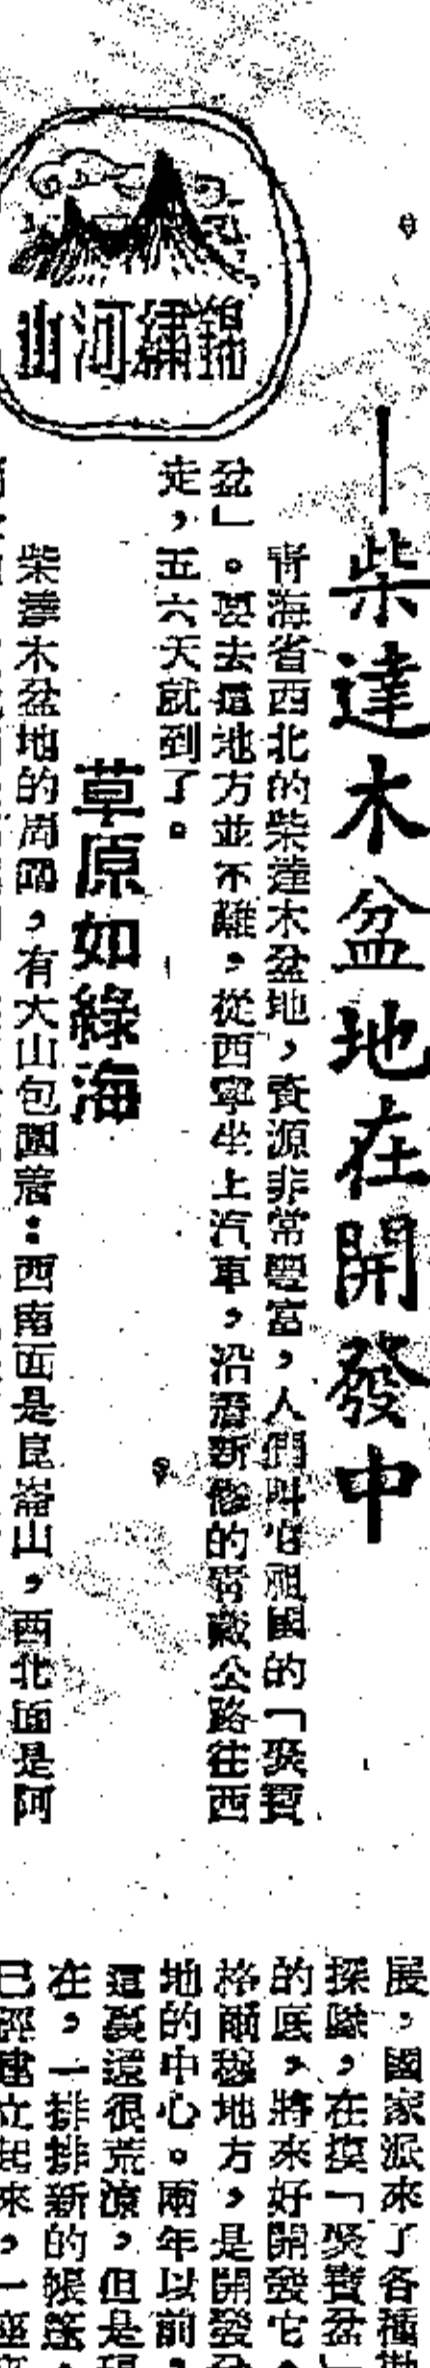 錦繡河山
—柴達木盆地在開發中
青海省西北的柴達木盆地，資源非常豐富，人們叫它祖國的「聚寶
盆」。要去這地方並不難，從西寧坐上汽車，沿着新修的青藏公路往西
走，五六天就到了。
草原如綠海
柴達木盆地的周圍，有大山包圍着：西南面是昆崙山，西北面是阿
展，國家派來了各種
探險，在摸「聚寶盆」
的底，將來好開發它。
格爾穆地方，是開發
地的中心。兩年以前，
這裏還很荒涼，但是
在，一排排新的帳篷，
已經建立起來，一座